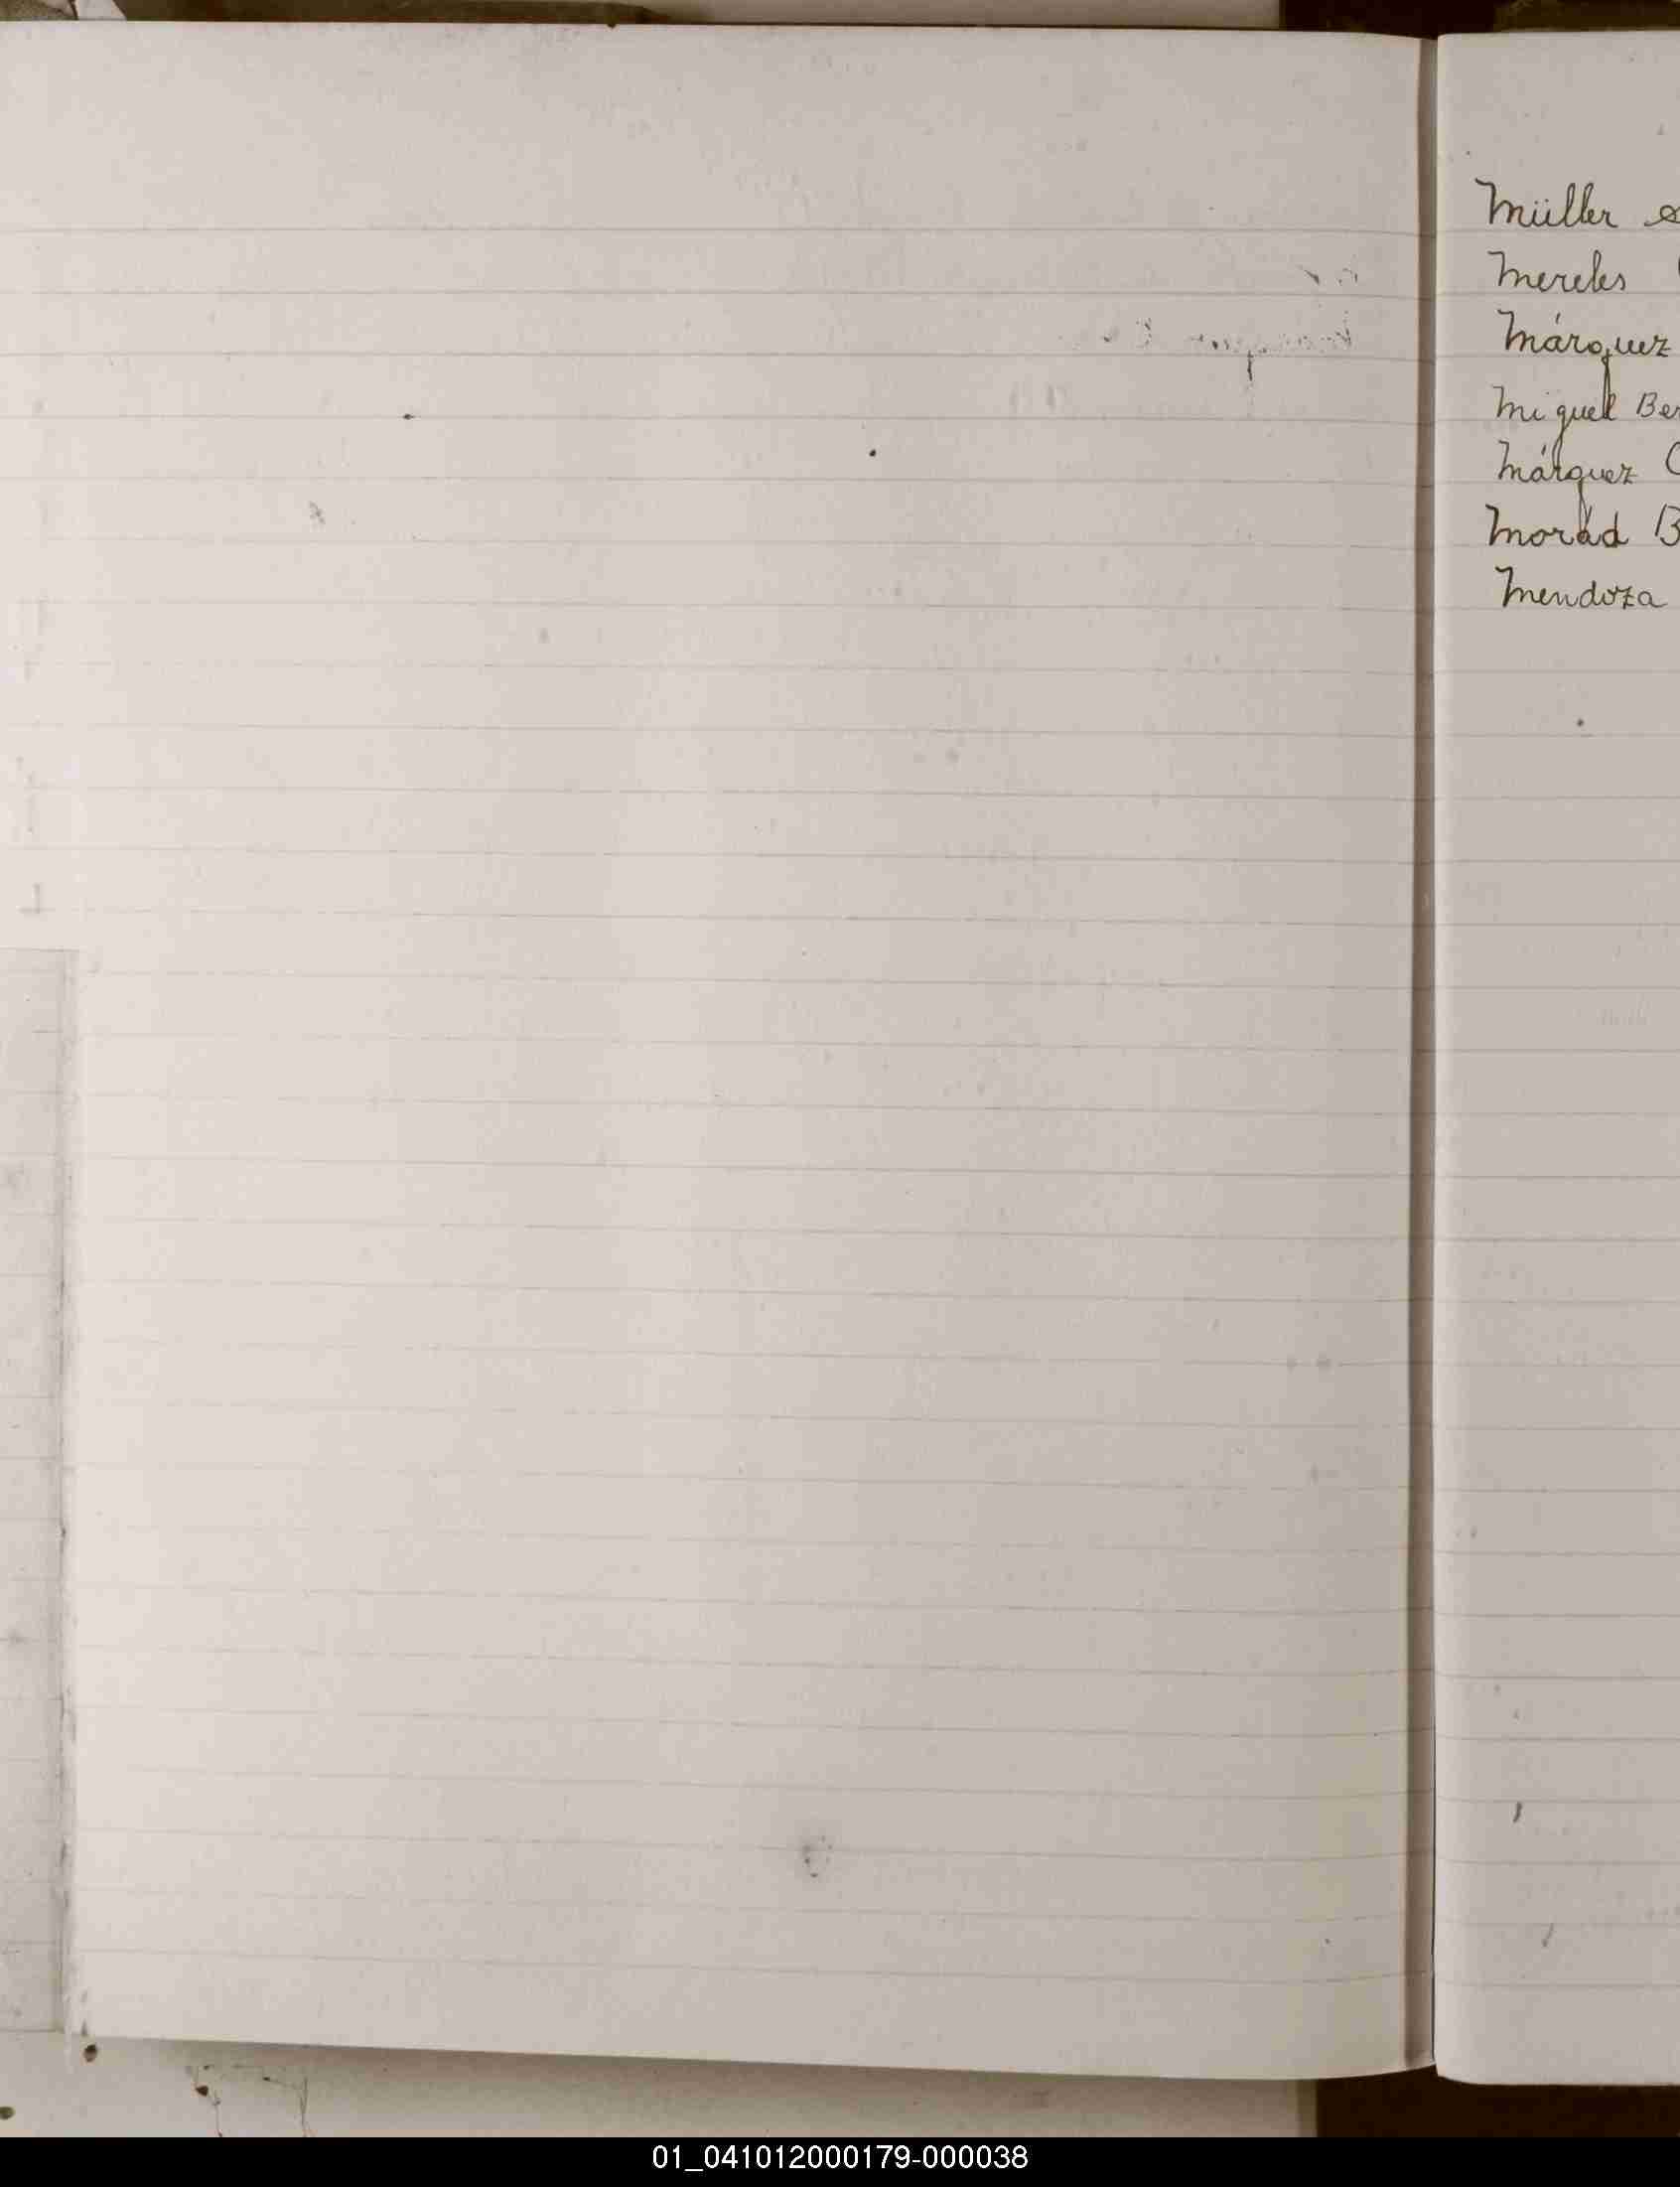 Müller
Mereles
Márquez
Miguel Ber
Márquez C
Morád B
Mendoza
01_041012000179-000038